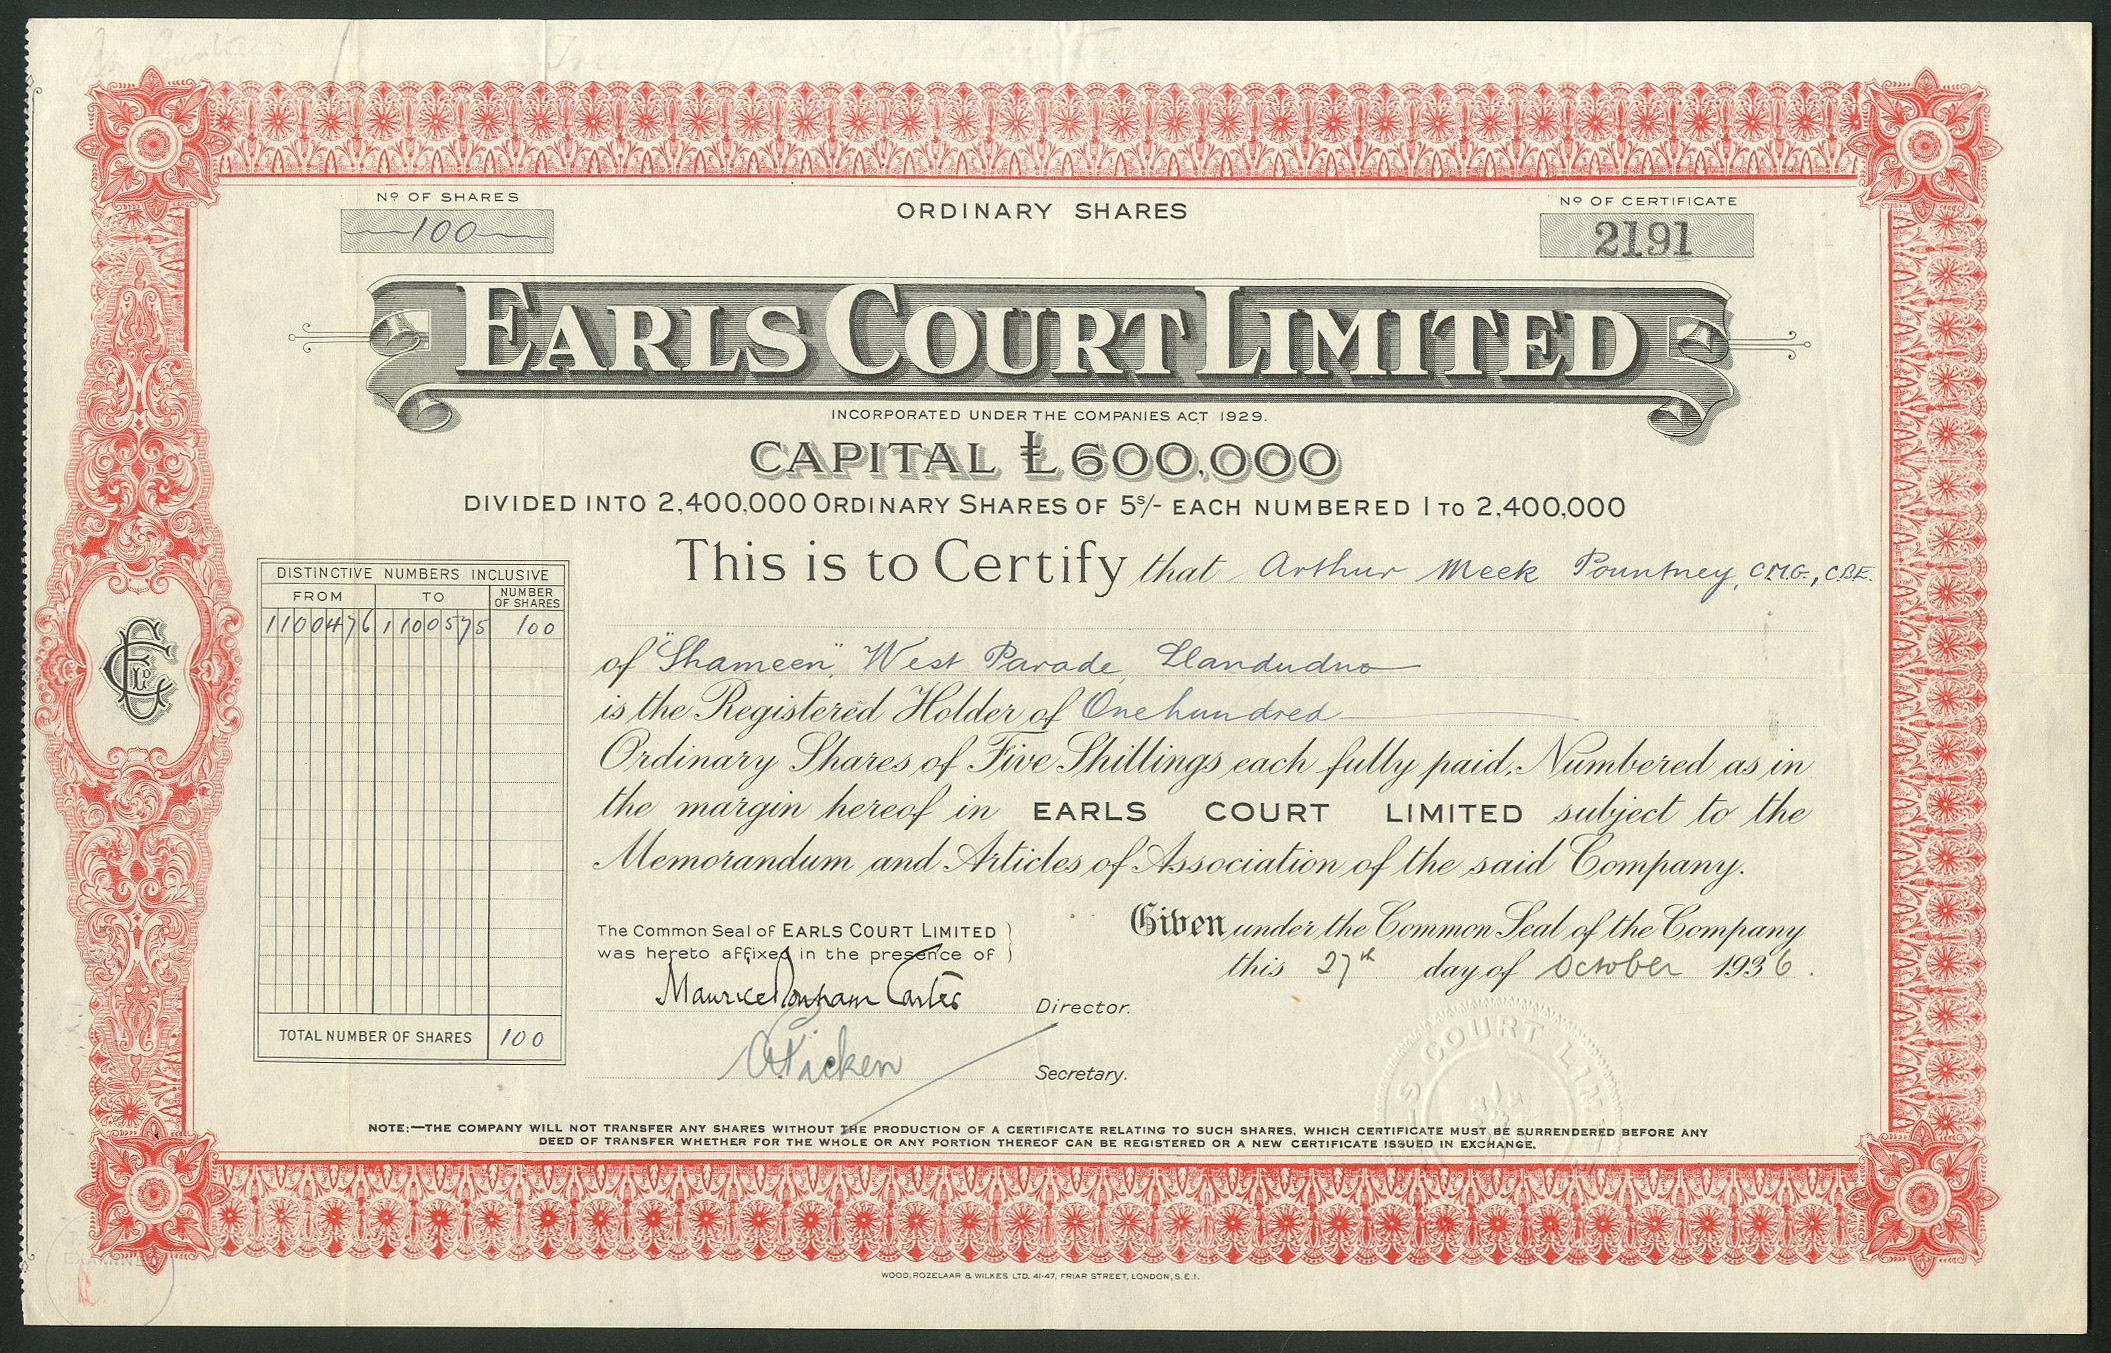 Nº OF SHARES
100
ORDINARY SHARES
Nº OF CERTIFICATE
2191
EARLS COURT LIMITED
INCORPORATED UNDER THE COMPANIES ACT 1929.
CAPITAL £600,000
DIVIDED INTO 2,400,000 ORDINARY SHARES OF 5s/- EACH NUMBERED 1 TO 2,400,000
This is to Certify that Arthur Meek Pountney, C.M.G., C.B.E.
of "Shameen", West Parade, Llandudno
is the Registered Holder of One hundred
Ordinary Shares of Five Shillings each fully paid, Numbered as in
the margin hereof in EARLS COURT LIMITED subject to the
Memorandum and Articles of Association of the said Company.
DISTINCTIVE NUMBERS INCLUSIVE
FROM TO NUMBER OF SHARES
1100476 1100575 100
TOTAL NUMBER OF SHARES 100
The Common Seal of EARLS COURT LIMITED
was hereto affixed in the presence of
Maurice Bonham Carter Director.
Picken Secretary.
Given under the Common Seal of the Company
this 27th day of October 1936.
S COURT LIM
NOTE:—THE COMPANY WILL NOT TRANSFER ANY SHARES WITHOUT THE PRODUCTION OF A CERTIFICATE RELATING TO SUCH SHARES, WHICH CERTIFICATE MUST BE SURRENDERED BEFORE ANY
DEED OF TRANSFER WHETHER FOR THE WHOLE OR ANY PORTION THEREOF CAN BE REGISTERED OR A NEW CERTIFICATE ISSUED IN EXCHANGE.
WOOD, ROZELAAR & WILKES LTD. 41-47, FRIAR STREET, LONDON, S.E.1.